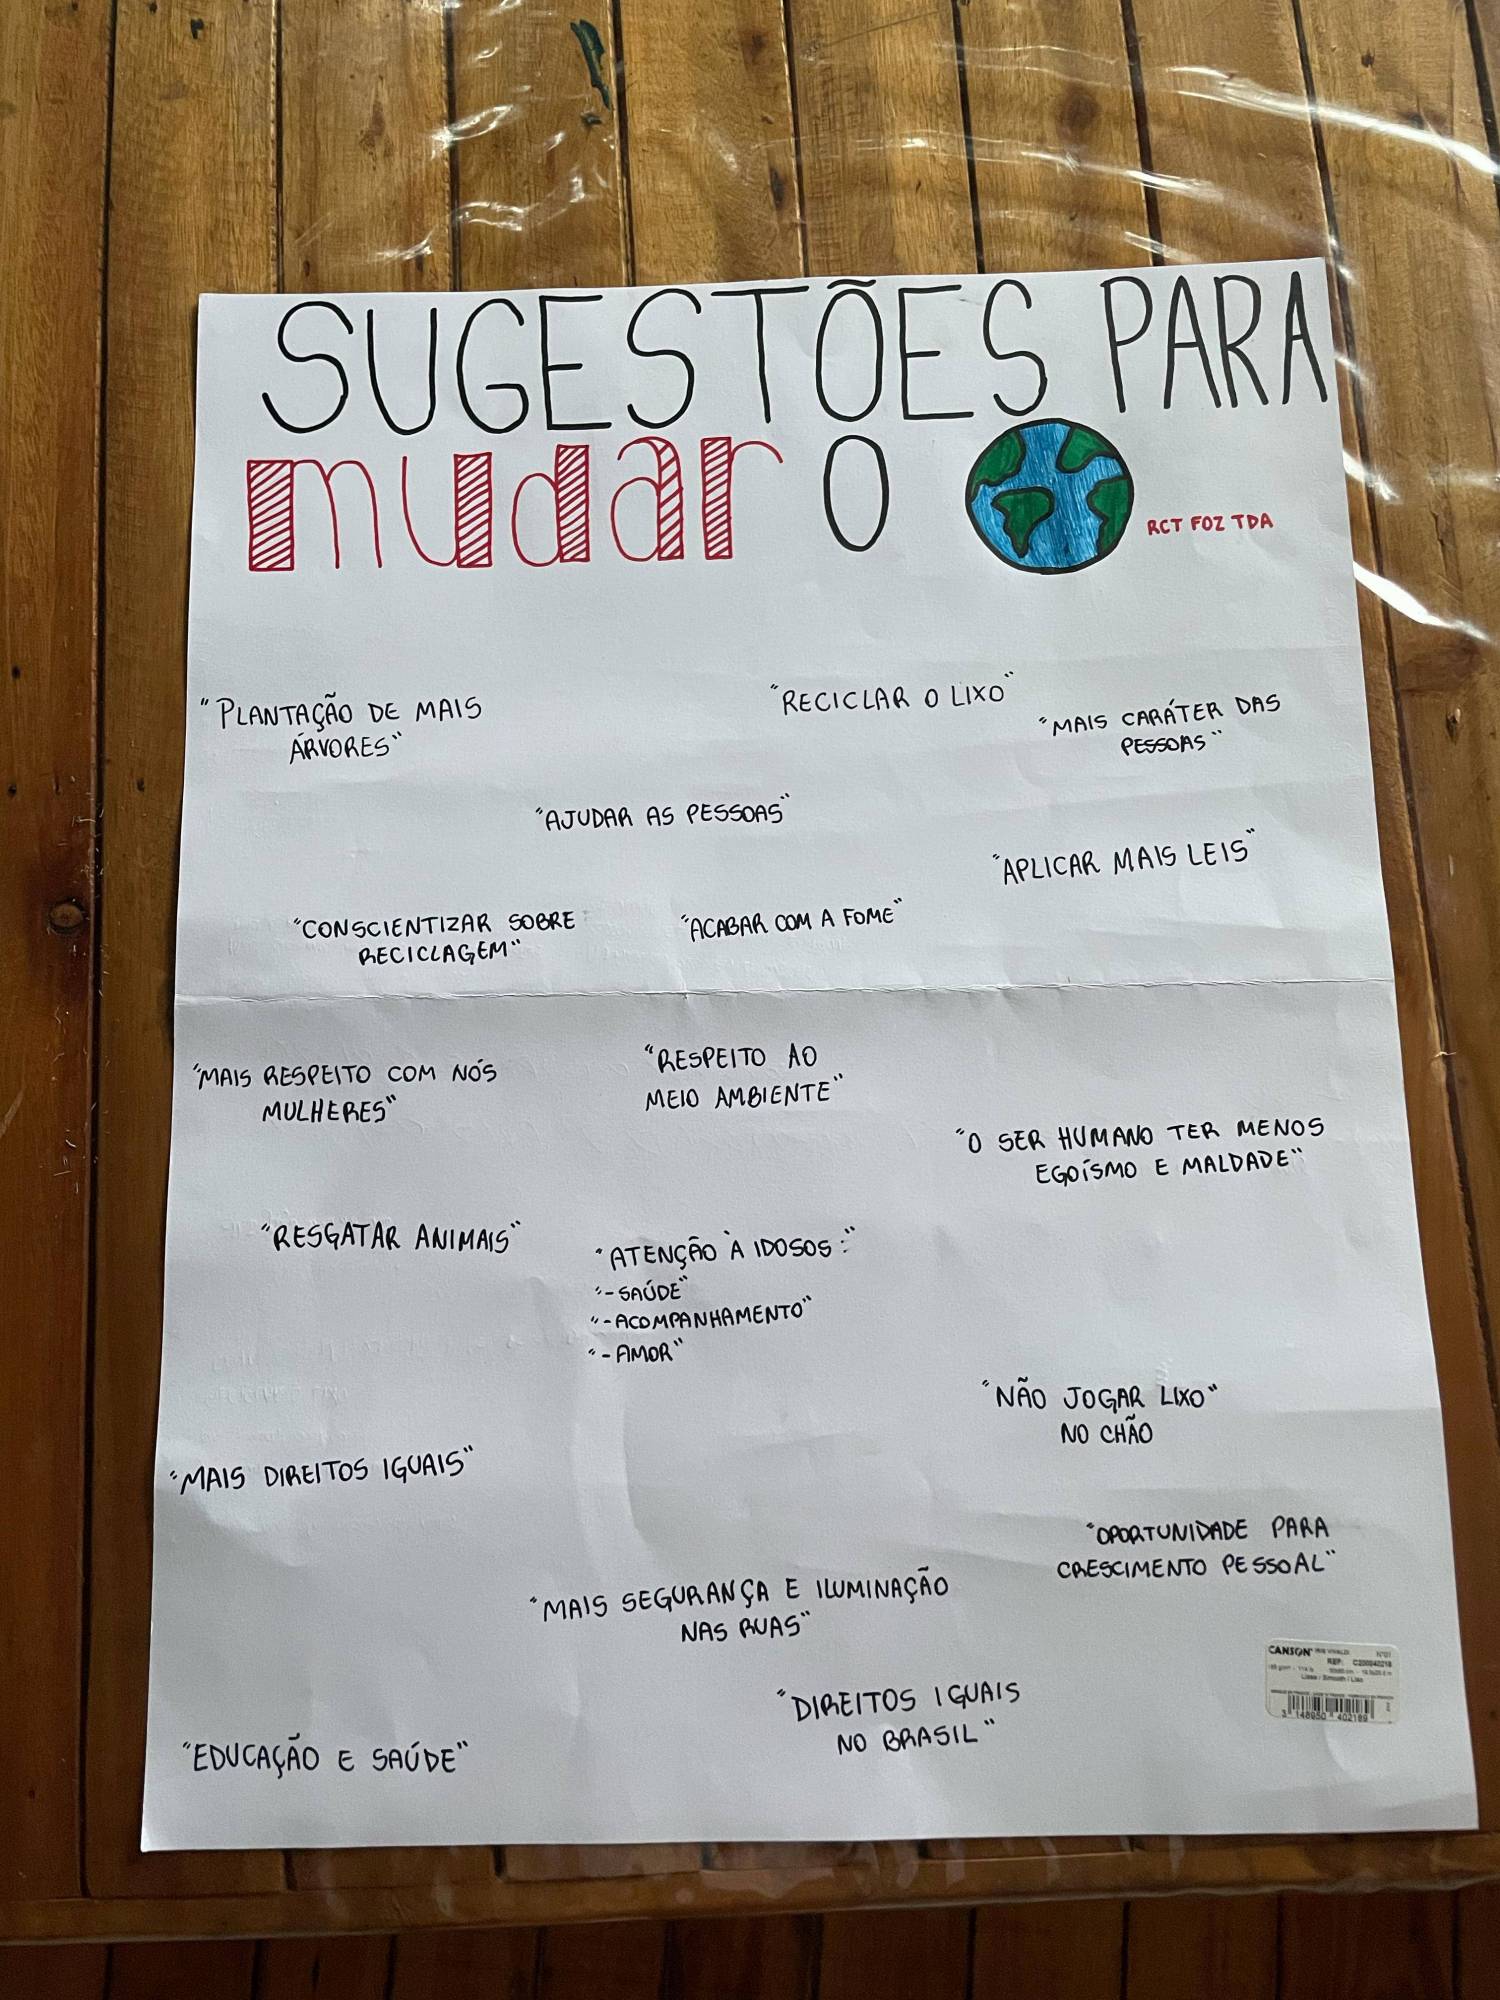 SUGESTÕES PARA
mudar O
RCT FOZ TDA
"PLANTAÇÃO DE MAIS
ÁRVORES"
"RECICLAR O LIXO"
"MAIS CARÁTER DAS
PESSOAS"
"AJUDAR AS PESSOAS"
"APLICAR MAIS LEIS"
"CONSCIENTIZAR SOBRE
RECICLAGEM"
"ACABAR COM A FOME"
"MAIS RESPEITO COM NÓS
MULHERES"
"RESPEITO AO
MEIO AMBIENTE"
"O SER HUMANO TER MENOS
EGOÍSMO E MALDADE"
"RESGATAR ANIMAIS"
"ATENÇÃO À IDOSOS:"
"-SAÚDE"
"-ACOMPANHAMENTO"
"-AMOR"
"NÃO JOGAR LIXO"
NO CHÃO
"MAIS DIREITOS IGUAIS"
"OPORTUNIDADE PARA
CRESCIMENTO PESSOAL"
"MAIS SEGURANÇA E ILUMINAÇÃO
NAS RUAS"
"DIREITOS IGUAIS
NO BRASIL"
"EDUCAÇÃO E SAÚDE"
CANSON
REF: C200040218
Lisse / Smooth / Liso
3 148950 402189